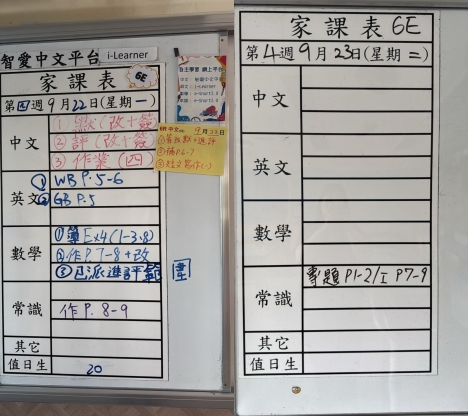 智愛中文平台 i-Learner
家課表 6E
第四週9月22日(星期一)
中文
② 評(改+簽)
③ 作業(四)
英文
① WB P.5-6
② GB P.5
數學
① 簿 Ex4(1-3.8)
② 作 P.7-8+改
③ 已派進評範
常識
作 P. 8-9
其它
值日生
20
9月22日
家課表 6E
第4週9月23日(星期二)
中文
英文
數學
常識
專題 P1-2/I P7-9
其它
值日生